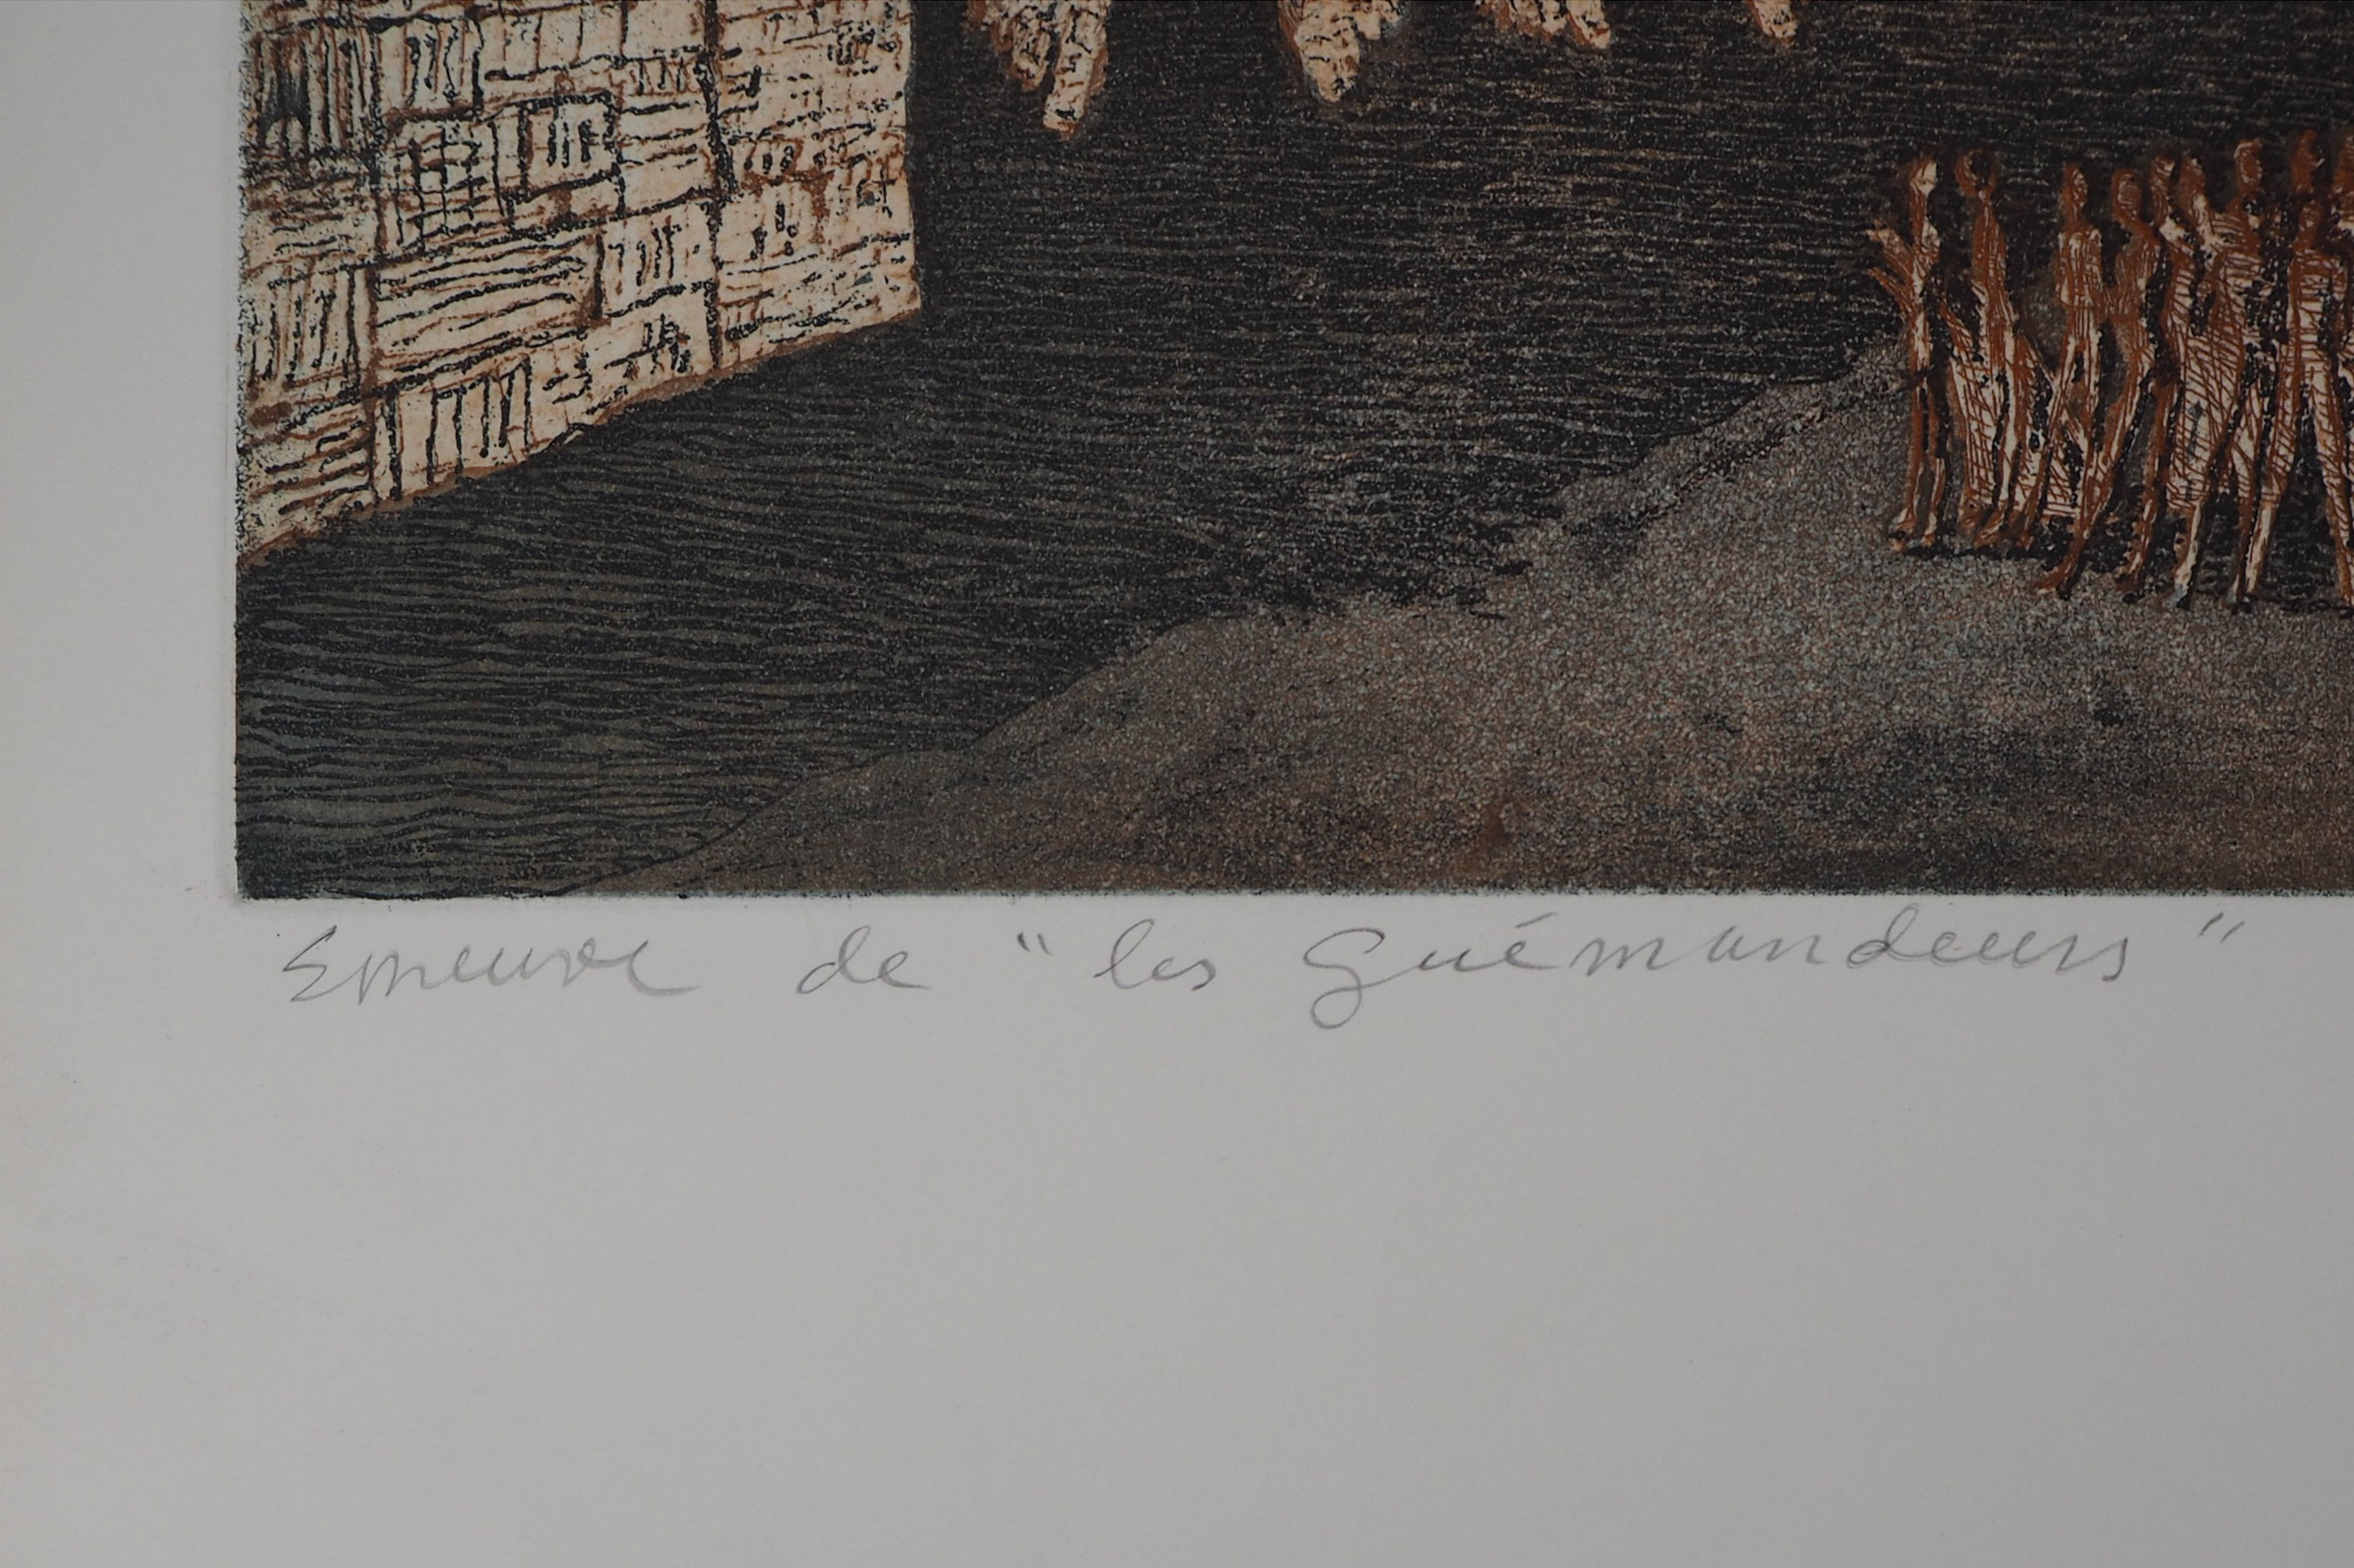 Epreuve de "les Guémandeurs"